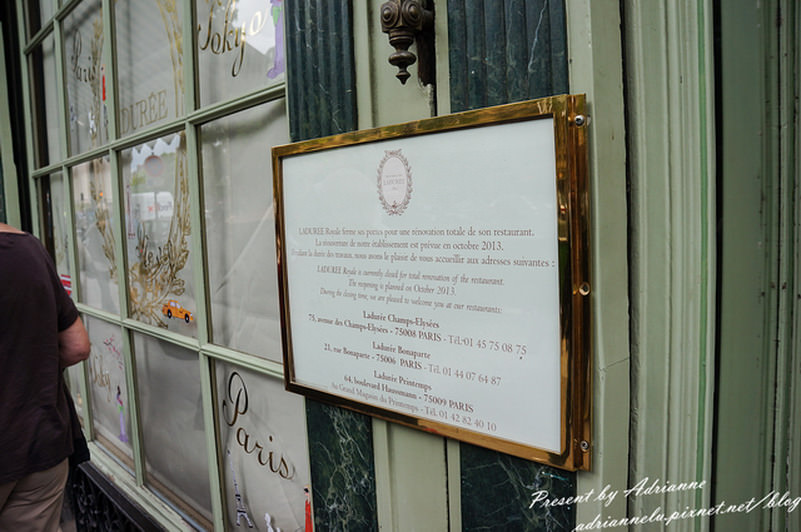 Paris
Tokyo
DURÉE
Paris
LADURÉE
Paris
LADURÉE Royale ferme ses portes pour une rénovation totale de son restaurant.
La réouverture de notre établissement est prévue en octobre 2013.
Pendant la durée des travaux, nous avons le plaisir de vous accueillir aux adresses suivantes :
LADURÉE Royale is currently closed for total renovation of the restaurant.
The reopening is planned on October 2013.
During the closing time, we are pleased to welcome you at our restaurants:
Ladurée Champs-Elysées
75, avenue des Champs-Elysées - 75008 PARIS - Tél. 01 45 75 08 75
Ladurée Bonaparte
21, rue Bonaparte - 75006 PARIS - Tél. 01 44 07 64 87
Ladurée Printemps
64, boulevard Haussmann - 75009 PARIS
Au Grand Magasin du Printemps - Tél. 01 42 82 40 10
Present by Adrianne
adriannelu.pixnet.net/blog